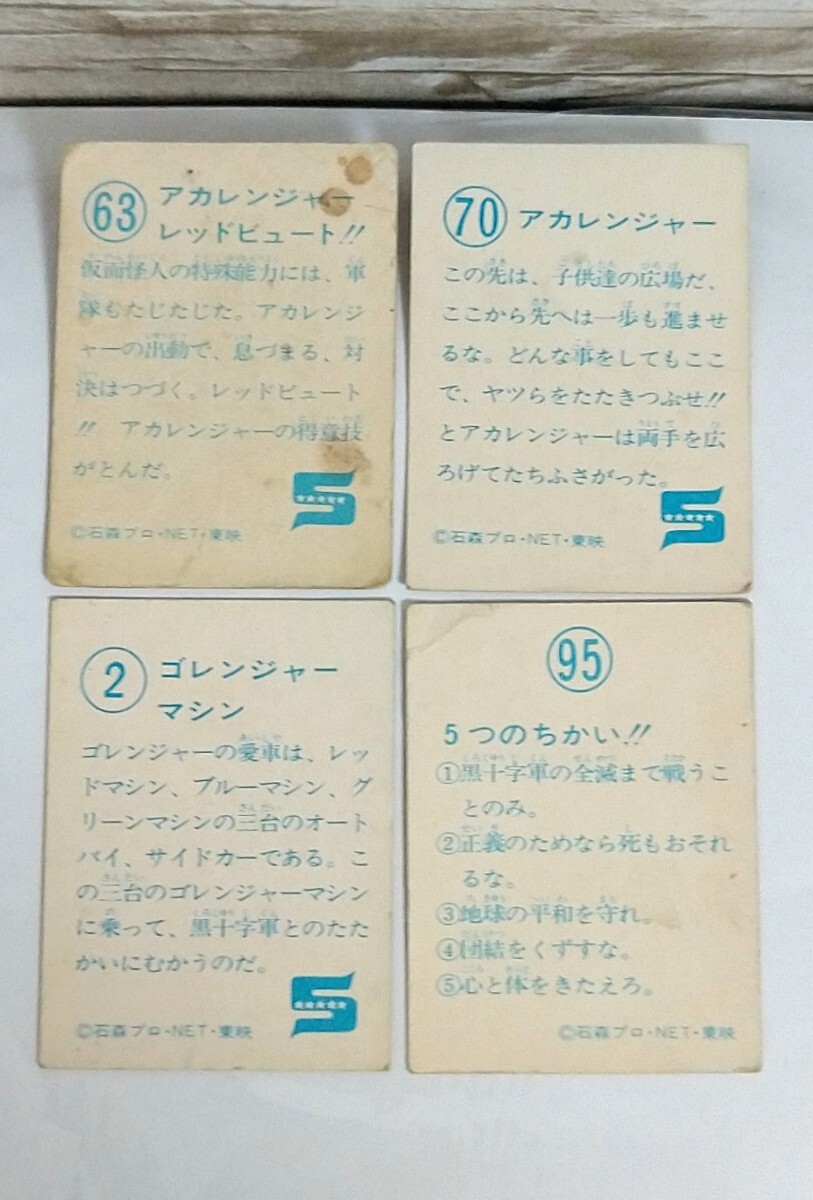 63
アカレンジャー
レッドビュート!!
仮面怪人の特殊能力には、軍
隊もたじたじた。アカレンジ
ャーの出動で、息づまる、対
決はつづく。レッドビュート
!! アカレンジャーの得意技
がとんだ。
©石森プロ・NET・東映
70
アカレンジャー
この先は、子供達の広場だ、
ここから先へは一歩も進ませ
るな。どんな事をしてもここ
で、ヤツらをたたきつぶせ!!
とアカレンジャーは両手を広
ろげてたちふさがった。
©石森プロ・NET・東映
2
ゴレンジャー
マシン
ゴレンジャーの愛車は、レッ
ドマシン、ブルーマシン、グ
リーンマシンの三台のオート
バイ、サイドカーである。こ
の三台のゴレンジャーマシン
に乗って、黒十字軍とのたた
かいにむかうのだ。
©石森プロ・NET・東映
95
5つのちかい!!
①黒十字軍の全滅まで戦うこ
とのみ。
②正義のためなら死もおそれ
るな。
③地球の平和を守れ。
④団結をくずすな。
⑤心と体をきたえろ。
©石森プロ・NET・東映